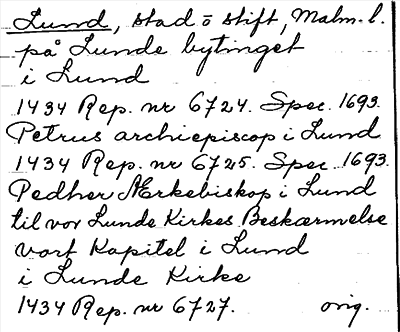 Lund, stad ō stift, Malm. l.
på Lunde bytinget
i Lund
1434 Rep. nr 6724. Spec. 1693.
Petrus archiepiscop i Lund
1434 Rep. nr 6725. Spec. 1693.
Pedher Ærkebiskop i Lund
til vor Lunde Kirkes Beskærmelse
vort Kapitel i Lund
i Lunde Kirke
1434 Rep. nr 6727. orig.